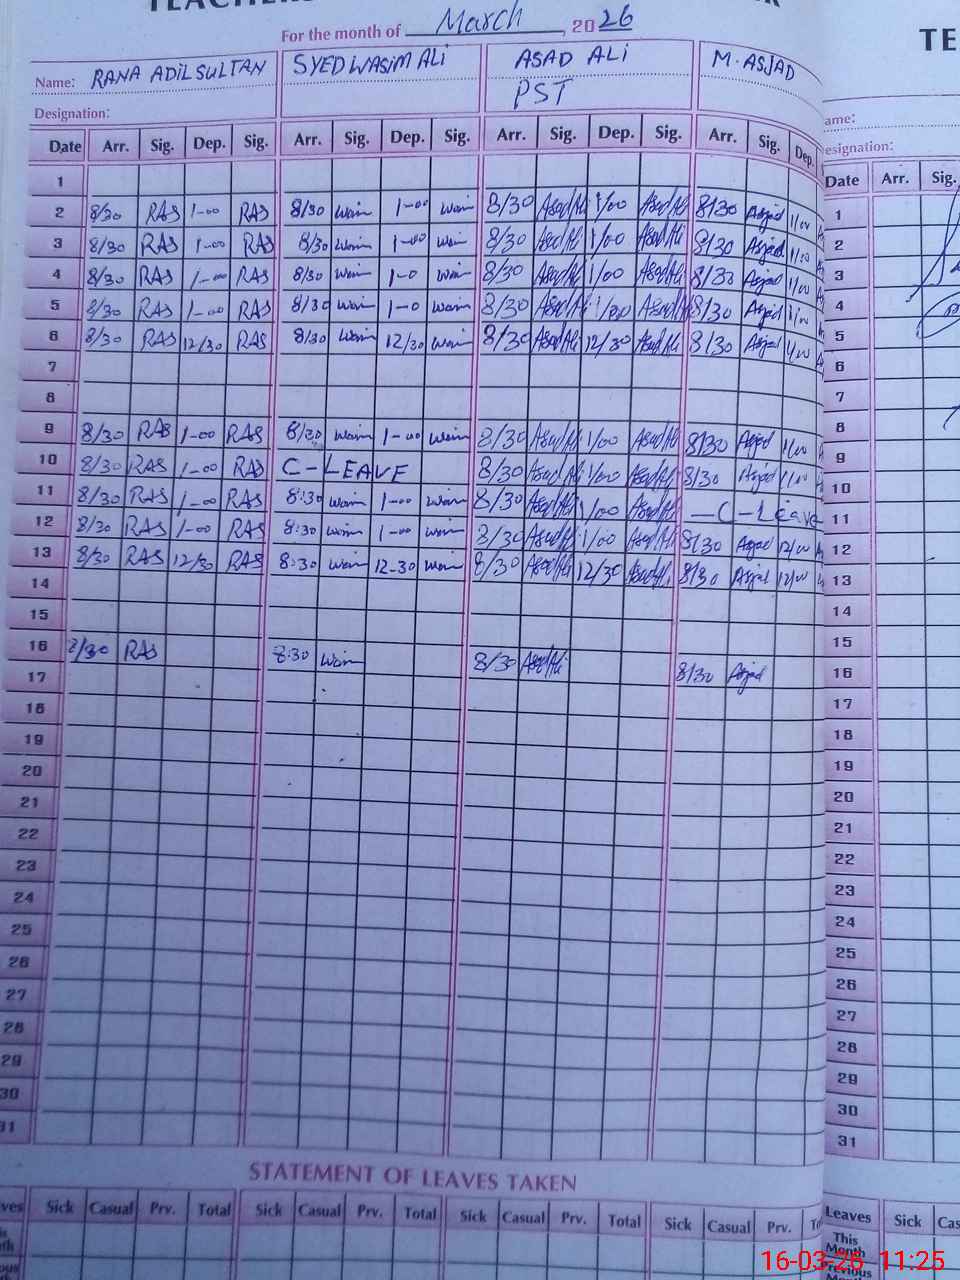 For the month of March, 2026
Name: RANA ADIL SULTAN SYED WASIM ALI ASAD ALI M. ASJAD
PST
Designation:
Date Arr. Sig. Dep. Sig. Arr. Sig. Dep. Sig. Arr. Sig. Dep. Sig. Arr. Sig. Dep.
1
2 8/30 RAS 1-00 RAS 8/30 Wasim 1-00 Wasim 8/30 Asad Ali 1/00 Asad Ali 8/30 Asjad 1/00
3 8/30 RAS 1-00 RAS 8/30 Wasim 1-00 Wasim 8/30 Asad Ali 1/00 Asad Ali 8/30 Asjad 1/00
4 8/30 RAS 1-00 RAS 8/30 Wasim 1-0 Wasim 8/30 Asad Ali 1/00 Asad Ali 8/30 Asjad 1/00
5 8/30 RAS 1-00 RAS 8/30 Wasim 1-0 Wasim 8/30 Asad Ali 1/00 Asad Ali 8/30 Asjad 1/00
6 8/30 RAS 12/30 RAS 8/30 Wasim 12/30 Wasim 8/30 Asad Ali 12/30 Asad Ali 8/30 Asjad
7
8
9 8/30 RAS 1-00 RAS 8/30 Wasim 1-00 Wasim 8/30 Asad Ali 1/00 Asad Ali 8/30 Asjad 1/00
10 8/30 RAS 1-00 RAS C-LEAVE 8/30 Asad Ali 1/00 Asad Ali 8/30 Asjad
11 8/30 RAS 1-00 RAS 8:30 Wasim 1-00 Wasim 8/30 Asad Ali 1/00 Asad Ali -C-Leave
12 8/30 RAS 1-00 RAS 8:30 Wasim 1-00 Wasim 8/30 Asad Ali 1/00 Asad Ali 8/30 Asjad 12/00
13 8/30 RAS 12/30 RAS 8:30 Wasim 12-30 Wasim 8/30 Asad Ali 12/30 Asad Ali 8/30 Asjad 12/00
14
15
16 8/30 RAS 8:30 Wasim 8/30 Asad Ali 8/30 Asjad
17
18
19
20
21
22
23
24
25
26
27
28
29
30
31
STATEMENT OF LEAVES TAKEN
Sick Casual Prv. Total Sick Casual Prv. Total Sick Casual Prv. Total Sick Casual Prv.
TE
Date Arr. Sig.
1
2
3
4
5
6
7
8
9
10
11
12
13
14
15
16
17
18
19
20
21
22
23
24
25
26
27
28
29
30
31
Leaves Sick
This
Month
Previous
16-03-26 11:25